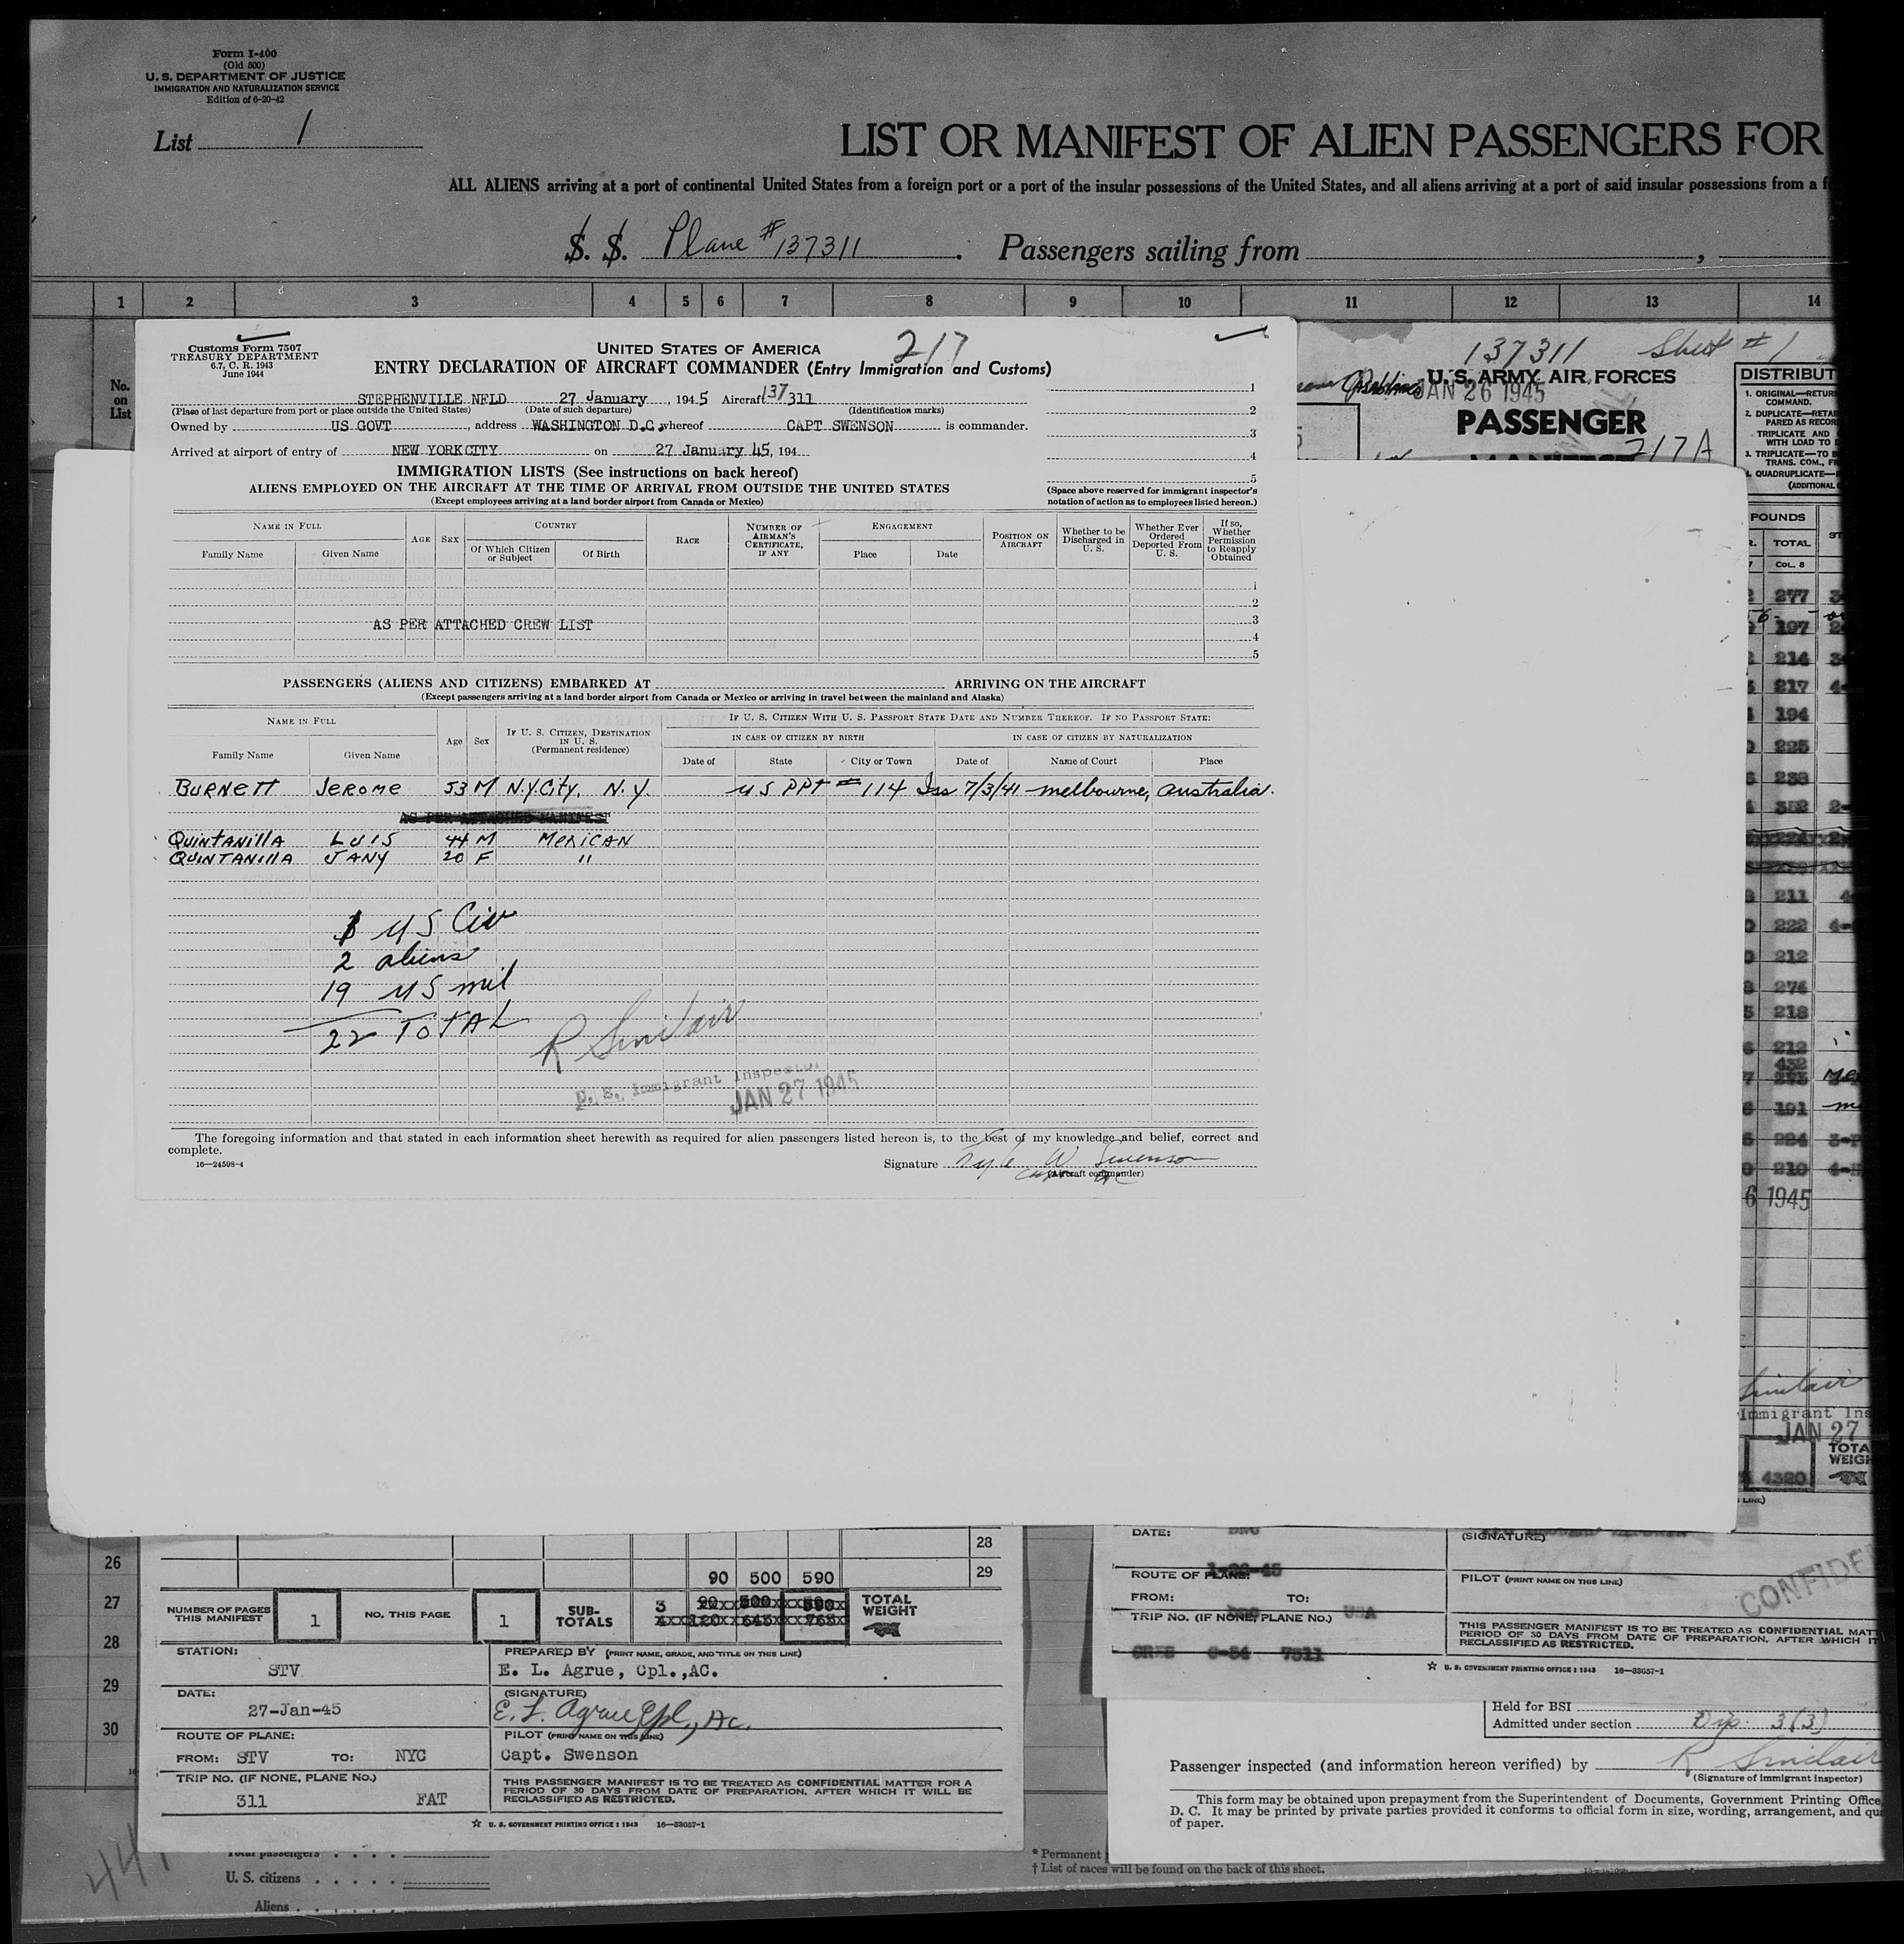 Form I-400
(Old 500)
U. S. DEPARTMENT OF JUSTICE
IMMIGRATION AND NATURALIZATION SERVICE
Edition of 6-20-42
List 1
LIST OR MANIFEST OF ALIEN PASSENGERS FOR
ALL ALIENS arriving at a port of continental United States from a foreign port or a port of the insular possessions of the United States, and all aliens arriving at a port of said insular possessions from a
S. S. Plane #137311. Passengers sailing from
1 2 3 4 5 6 7 8 9 10 11 12 13 14
No. on List
Customs Form 7507
TREASURY DEPARTMENT
6.7, C. R. 1943
June 1944
UNITED STATES OF AMERICA
217
ENTRY DECLARATION OF AIRCRAFT COMMANDER (Entry Immigration and Customs)
STEPHENVILLE NFLD 27 January, 1945 Aircraft 137311
(Place of last departure from port or place outside the United States) (Date of such departure) (Identification marks)
Owned by US GOVT, address WASHINGTON D.C. whereof CAPT SWENSON is commander.
Arrived at airport of entry of NEW YORK CITY on 27 January 45, 194
1
2
3
4
5
IMMIGRATION LISTS (See instructions on back hereof)
ALIENS EMPLOYED ON THE AIRCRAFT AT THE TIME OF ARRIVAL FROM OUTSIDE THE UNITED STATES
(Except employees arriving at a land border airport from Canada or Mexico)
(Space above reserved for immigrant inspector's
notation of action as to employees listed hereon.)
NAME IN FULL AGE SEX COUNTRY RACE NUMBER OF AIRMAN'S CERTIFICATE, IF ANY ENGAGEMENT POSITION ON AIRCRAFT Whether to be Discharged in U. S. Whether Ever Ordered Deported From U. S. If so, Whether Permission to Reapply Obtained
Family Name Given Name Of Which Citizen or Subject Of Birth Place Date
1
2
AS PER ATTACHED CREW LIST 3
4
5
PASSENGERS (ALIENS AND CITIZENS) EMBARKED AT ARRIVING ON THE AIRCRAFT
(Except passengers arriving at a land border airport from Canada or Mexico or arriving in travel between the mainland and Alaska)
NAME IN FULL Age Sex IF U. S. CITIZEN, DESTINATION IN U. S. (Permanent residence) IF U. S. CITIZEN WITH U. S. PASSPORT STATE DATE AND NUMBER THEREOF. IF NO PASSPORT STATE:
IN CASE OF CITIZEN BY BIRTH IN CASE OF CITIZEN BY NATURALIZATION
Family Name Given Name Date of State City or Town Date of Name of Court Place
BURNETT Jerome 53 M N.Y.City, N.Y. US PPT #114 Iss 7/3/41 melbourne, australia.
AS PER ATTACHED MANIFEST
QUINTANILLA LUIS 44 M MEXICAN
QUINTANILLA JANY 20 F "
1 US Civ
2 aliens
19 US mil
22 TOTAL
R Sinclair
U. S. Immigrant Inspector
JAN 27 1945
The foregoing information and that stated in each information sheet herewith as required for alien passengers listed hereon is, to the best of my knowledge and belief, correct and
complete.
16—24508-4
Signature Lyle W Swenson
(Aircraft commander)
137311 Sheet #1
U. S. ARMY AIR FORCES
JAN 26 1945
PASSENGER
217A
DISTRIBUT
1. ORIGINAL—RETUR
COMMAND.
2. DUPLICATE—RETAI
PARED AS RECOR
TRIPLICATE AND
WITH LOAD TO
3. TRIPLICATE—TO B
TRANS. COM., F
QUADRUPLICATE—
(ADDITIONAL
POUNDS
TOTAL
COL. 8
277
197
214
217
194
225
238
352
211
222
212
274
218
212
191
224
210
6 1945
Sinclair
Immigrant Ins
JAN 27
TOTA
WEIGH
4320
26
27
28
29
30
28
90 500 590 29
NUMBER OF PAGES THIS MANIFEST 1 NO. THIS PAGE 1 SUB-TOTALS 3 90 500 590 TOTAL WEIGHT
4 120 645 765
STATION: STV
PREPARED BY (PRINT NAME, GRADE, AND TITLE ON THIS LINE)
E. L. Agrue, Cpl.,AC.
DATE: 27-Jan-45
(SIGNATURE)
E. L. Agrue, Cpl., Ac.
ROUTE OF PLANE:
FROM: STV TO: NYC
PILOT (PRINT NAME ON THIS LINE)
Capt. Swenson
TRIP NO. (IF NONE, PLANE NO.)
311 FAT
THIS PASSENGER MANIFEST IS TO BE TREATED AS CONFIDENTIAL MATTER FOR A
PERIOD OF 30 DAYS FROM DATE OF PREPARATION, AFTER WHICH IT WILL BE
RECLASSIFIED AS RESTRICTED.
☆ U. S. GOVERNMENT PRINTING OFFICE : 1943 16—33057-1
DATE:
(SIGNATURE)
ROUTE OF PLANE:
FROM: TO: USA
PILOT (PRINT NAME ON THIS LINE)
TRIP NO. (IF NONE, PLANE NO.)
C-54 7311
CONFIDE
THIS PASSENGER MANIFEST IS TO BE TREATED AS CONFIDENTIAL MATT
PERIOD OF 30 DAYS FROM DATE OF PREPARATION, AFTER WHICH IT
RECLASSIFIED AS RESTRICTED.
☆ U. S. GOVERNMENT PRINTING OFFICE : 1943 16—33057-1
Held for BSI
Admitted under section 3(3)
Passenger inspected (and information hereon verified) by R Sinclair
(Signature of immigrant inspector)
This form may be obtained upon prepayment from the Superintendent of Documents, Government Printing Office,
D. C. It may be printed by private parties provided it conforms to official form in size, wording, arrangement, and qu
of paper.
Total passengers
U. S. citizens
Aliens
* Permanent
† List of races will be found on the back of this sheet.